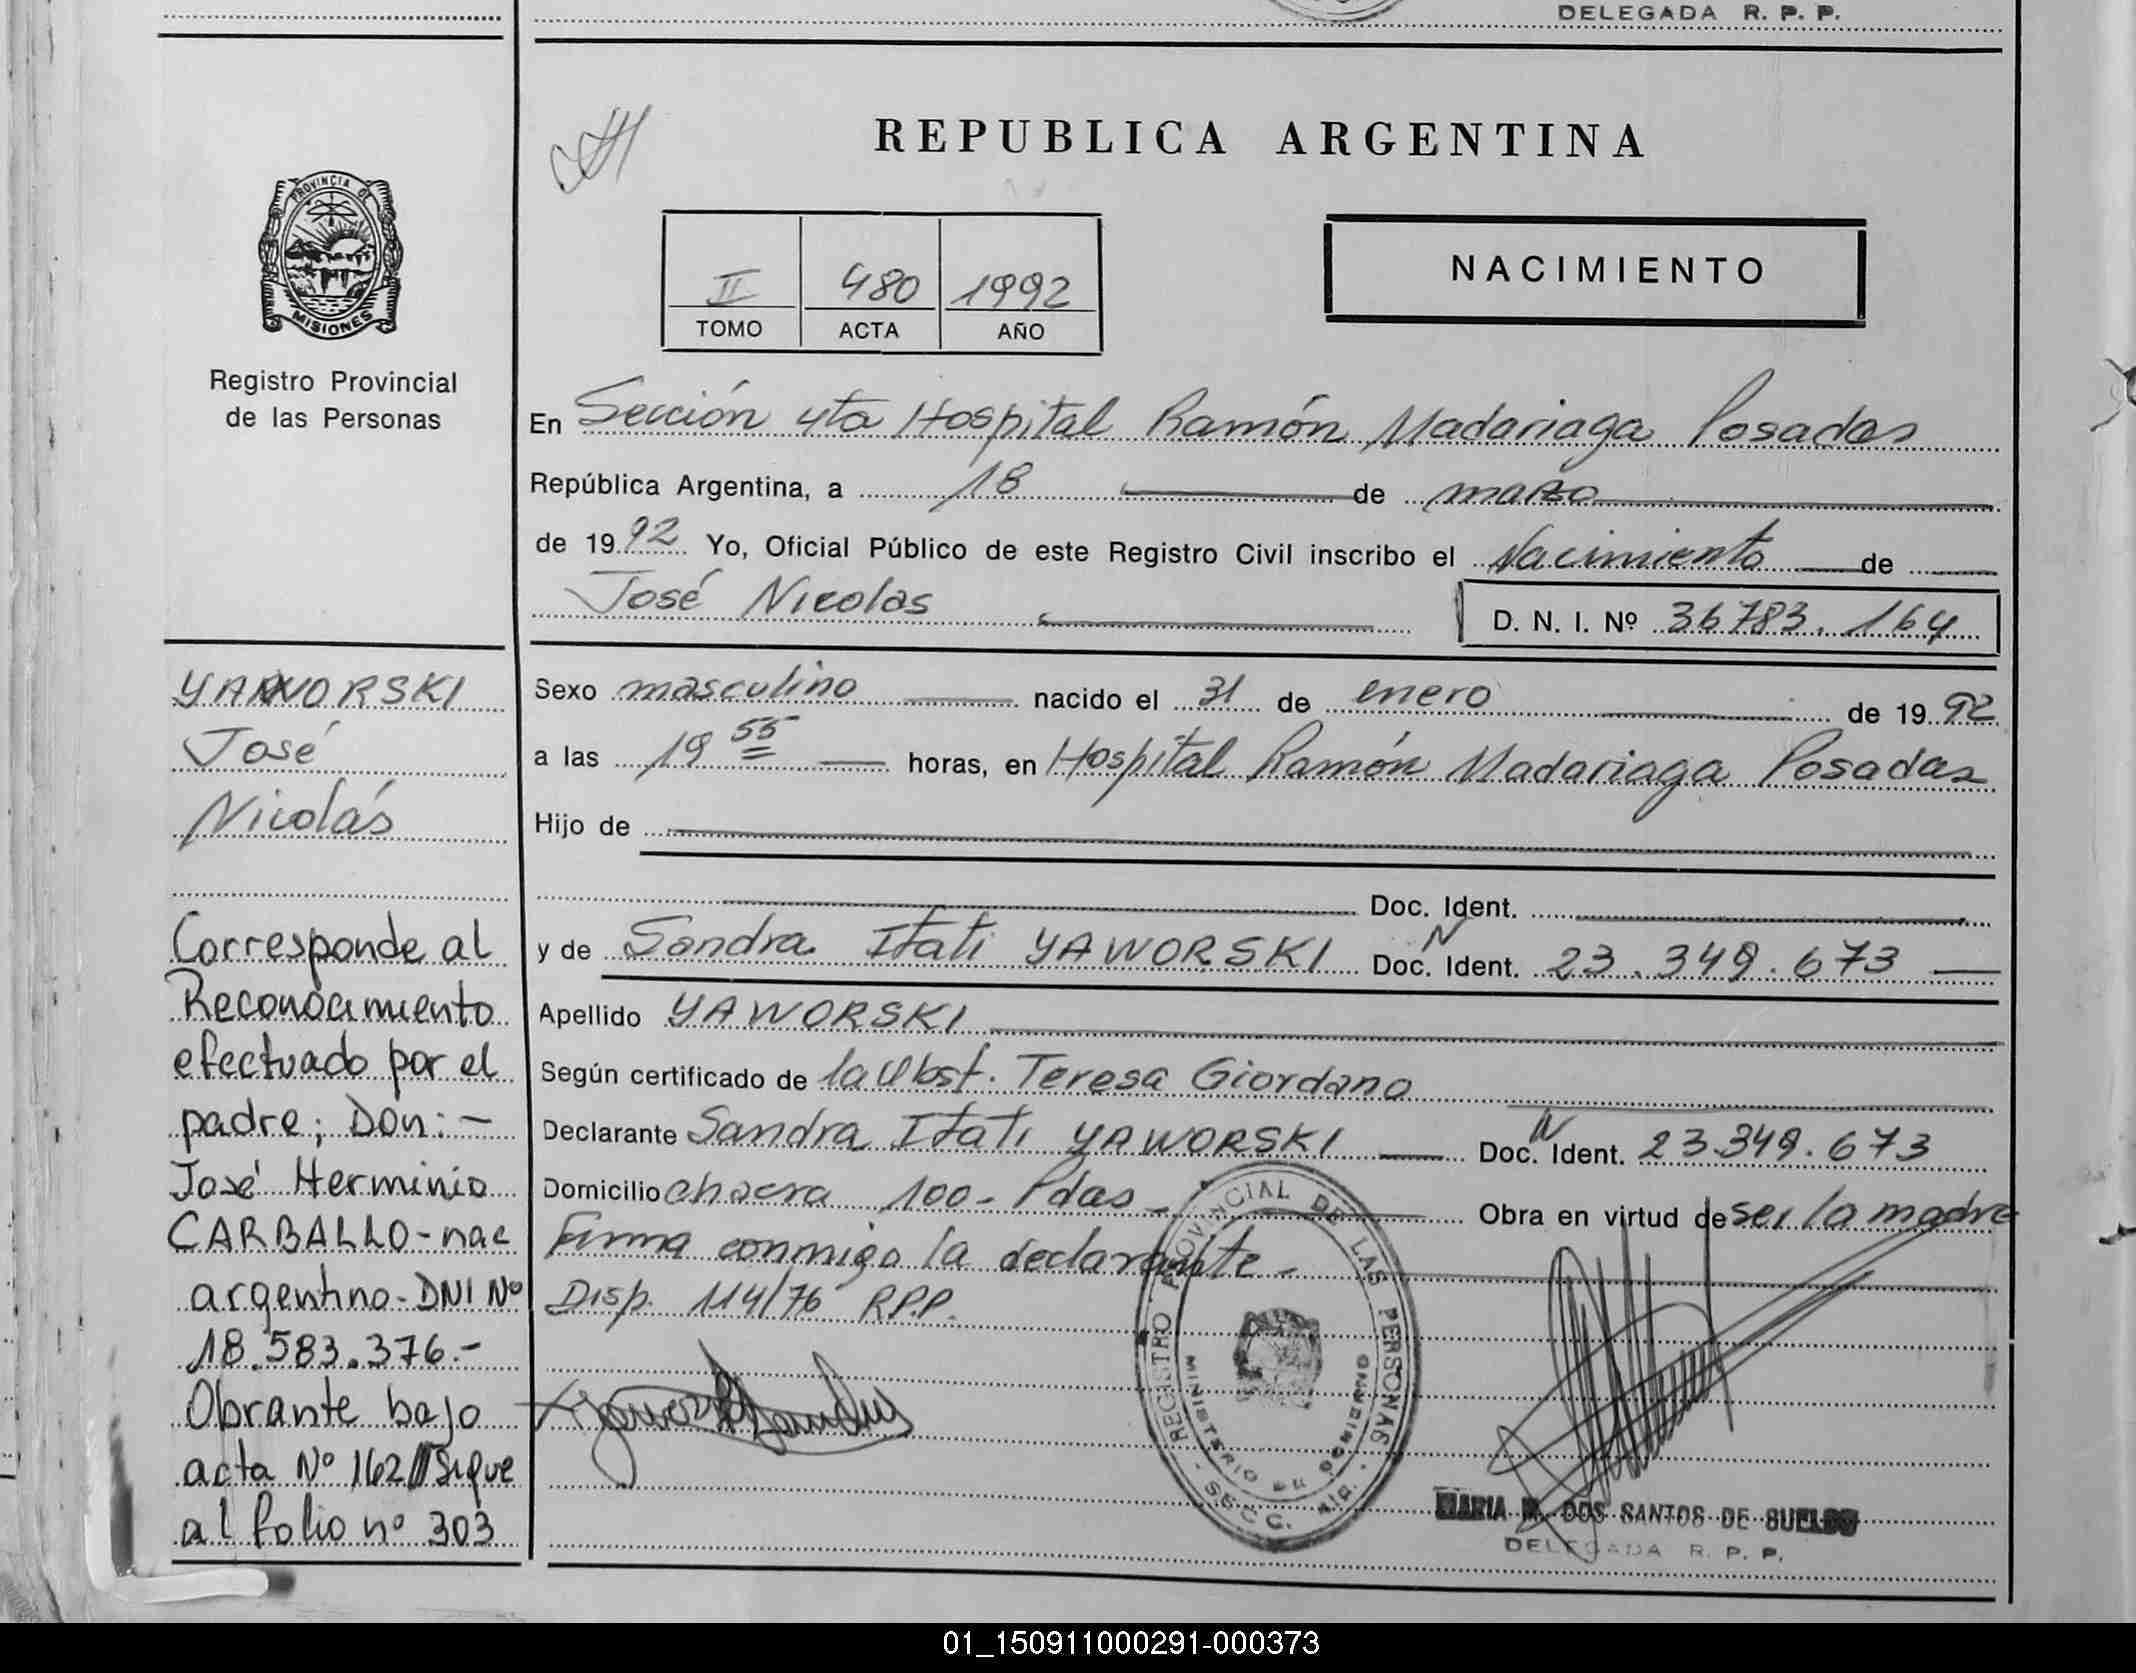 DELEGADA R. P. P.
REPUBLICA ARGENTINA
PROVINCIA DE
MISIONES
Registro Provincial
de las Personas
II 480 1992
TOMO ACTA AÑO
NACIMIENTO
En Sección 4ta Hospital Ramón Madariaga Posadas
República Argentina, a 18 de marzo
de 1992 Yo, Oficial Público de este Registro Civil inscribo el Nacimiento de
José Nicolas
D. N. I. Nº 36783.164
YAWORSKI
José
Nicolás
Corresponde al
Reconocimiento
efectuado por el
padre; Don:-
José Herminio
CARBALLO-nac
argentino-DNI Nº
18.583.376.-
Obrante bajo
acta Nº 162 Sigue
al folio nº 303
Sexo masculino nacido el 31 de enero de 1992
a las 19 55 horas, en Hospital Ramón Madariaga Posadas
Hijo de
Doc. Ident.
y de Sandra Itati YAWORSKI Doc. N Ident. 23.349.673
Apellido YAWORSKI
Según certificado de la Obst. Teresa Giordano
Declarante Sandra Itati YAWORSKI Doc. N Ident. 23.349.673
Domicilio chacra 100- Pdas - Obra en virtud de ser la madre
Firma conmigo la declarante -
Disp. 114/76 R.P.P.
REGISTRO PROVINCIAL DE LAS PERSONAS
MINISTERIO DE GOBIERNO
MARIA DOS SANTOS DE SUELDO
DELEGADA R. P. P.
01_150911000291-000373